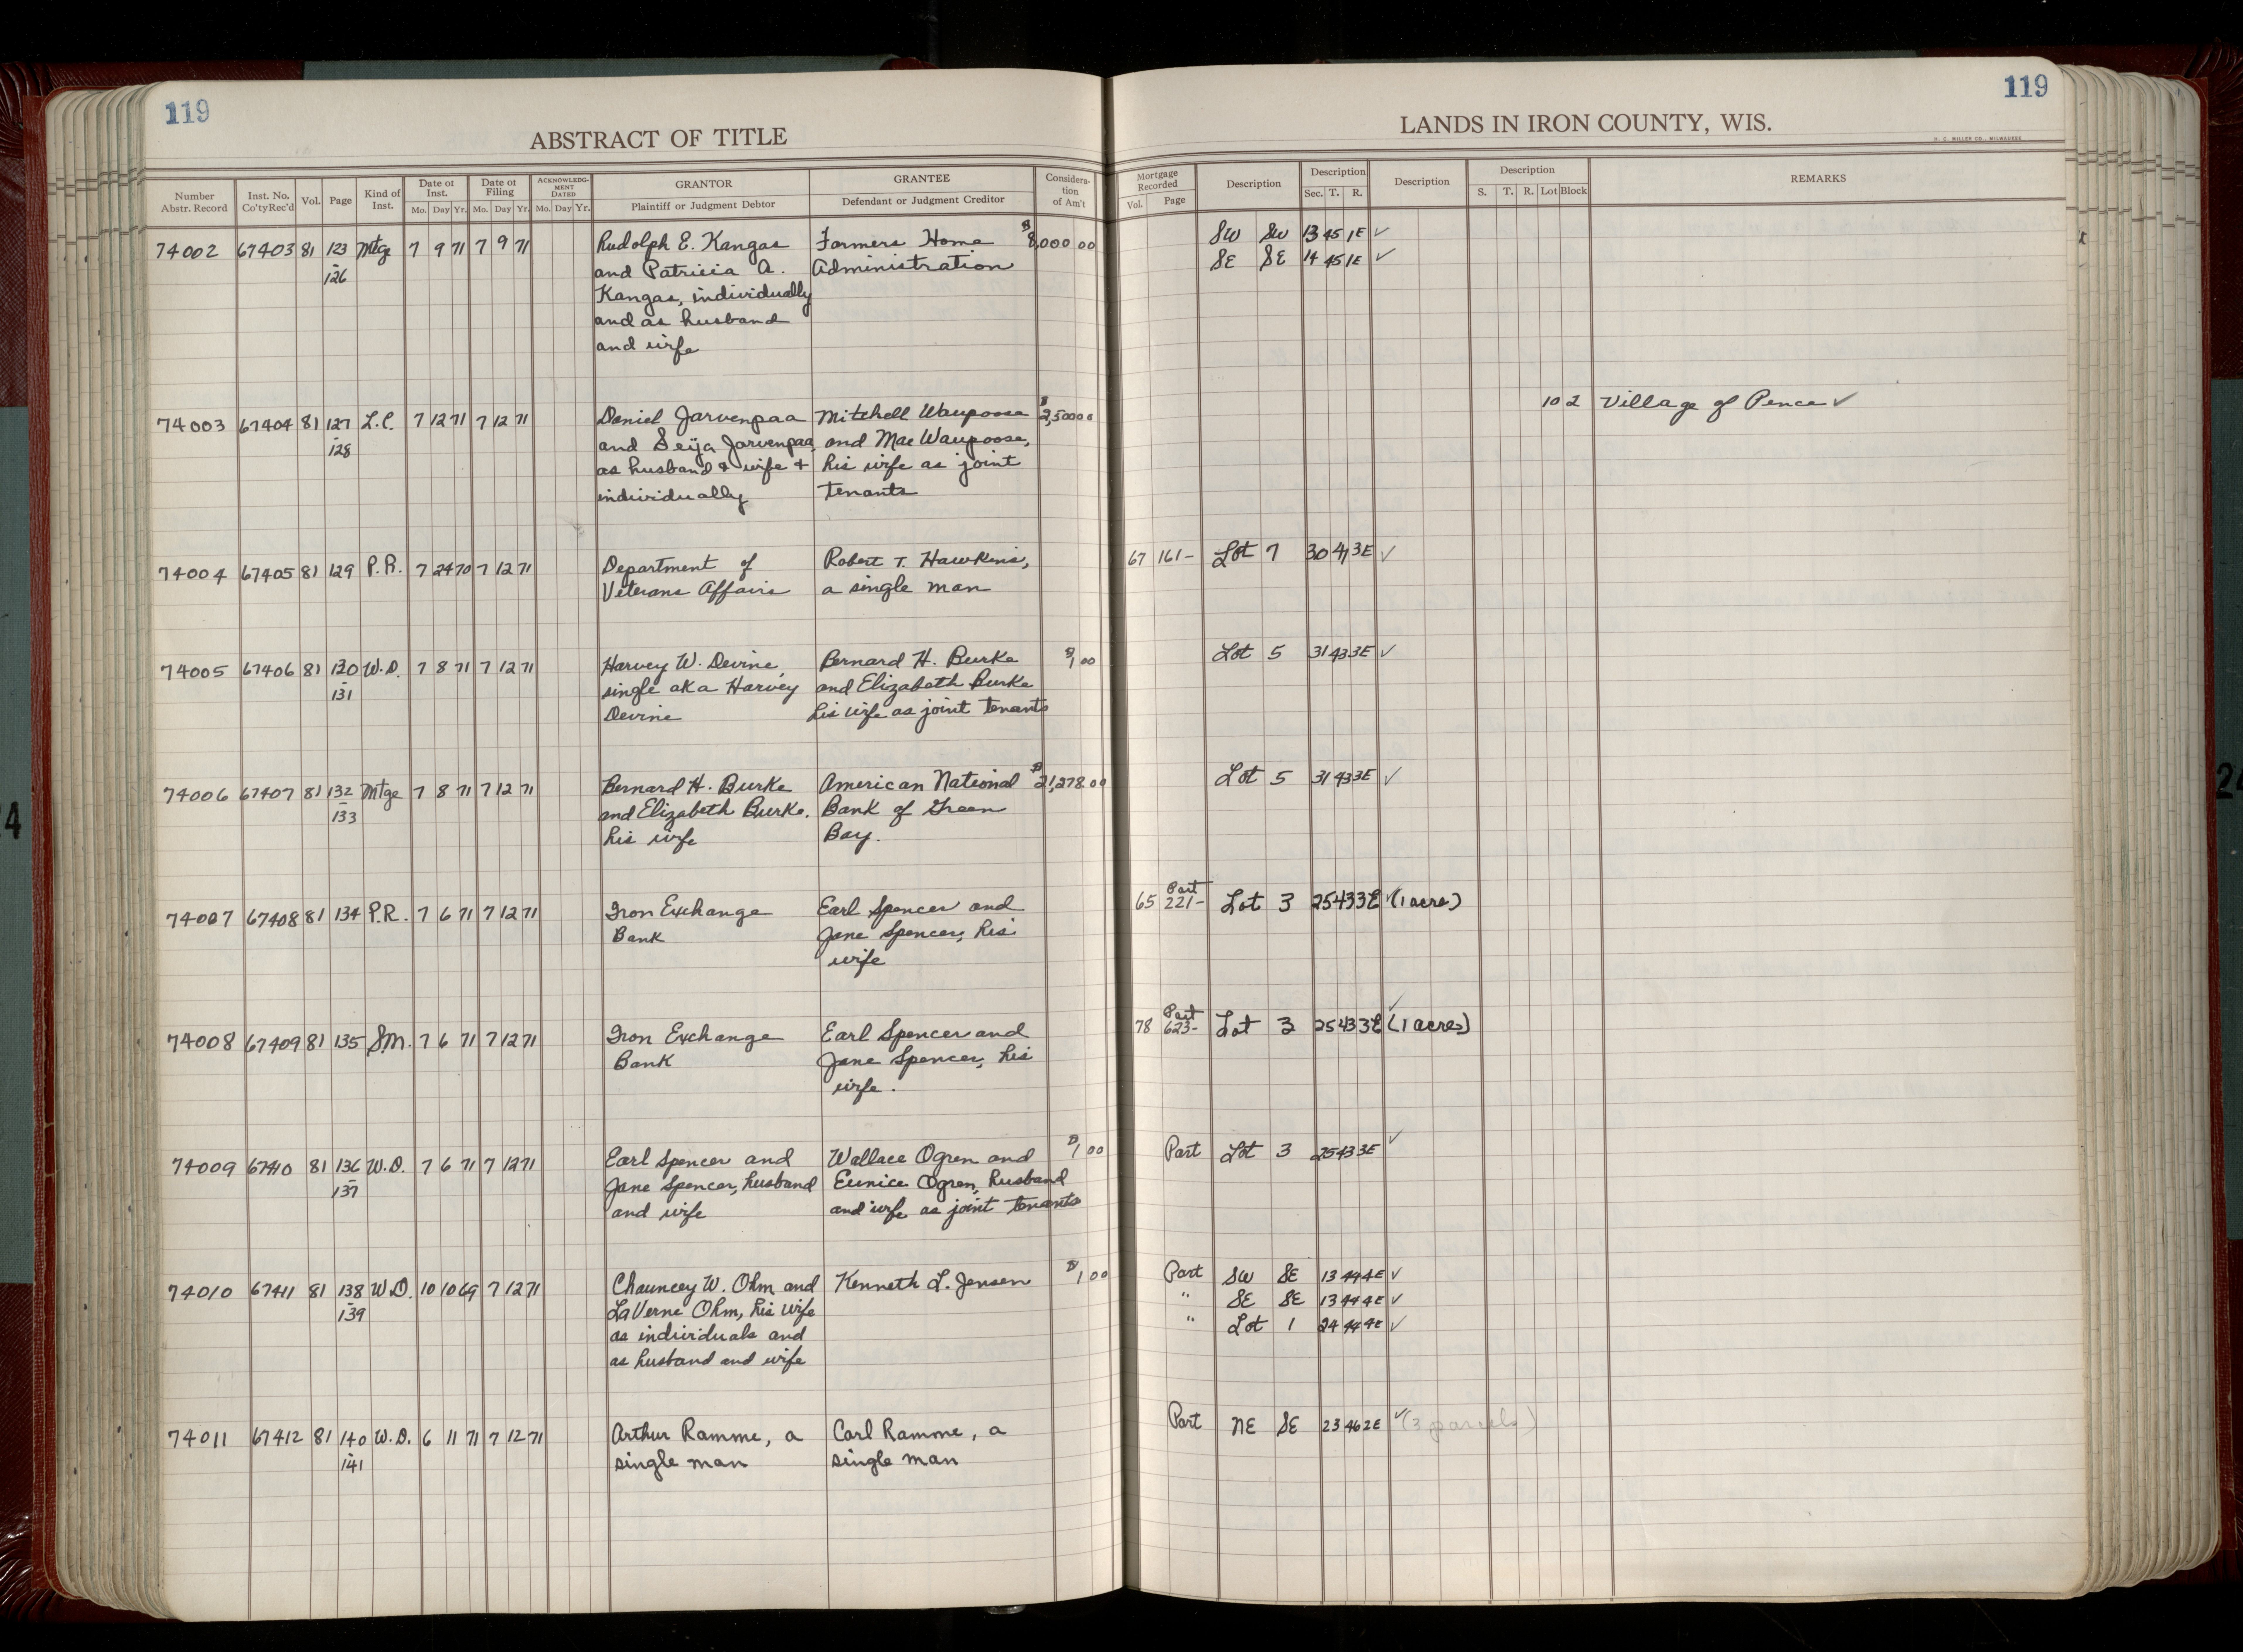 119
ABSTRACT OF TITLE
Number Abstr. Record | Inst. No. Co'ty Rec'd | Vol. | Page | Kind of Inst. | Date of Inst. Mo. Day Yr. | Date of Filing Mo. Day Yr. | ACKNOWLEDGMENT DATED Mo. Day Yr. | GRANTOR Plaintiff or Judgment Debtor | GRANTEE Defendant or Judgment Creditor | Consideration of Am't
74002 67403 81 123 Mtge 7 9 71 7 9 71 Rudolph E. Kangas Farmers Home $8,000 00
- 126 and Patricia A. Administration
Kangas, individually
and as husband
and wife
74003 67404 81 127 L.C. 7 12 71 7 12 71 Daniel Jarvenpaa Mitchell Waupoose $2,500 00
- 128 and Seija Jarvenpaa, and Mae Waupoose,
as husband & wife & his wife as joint
individually tenants
74004 67405 81 129 P.R. 7 24 70 7 12 71 Department of Robert T. Hawkins,
Veterans Affairs a single man
74005 67406 81 130 W.D. 7 8 71 7 12 71 Harvey W. Devine, Bernard H. Burke $1 00
- 131 single aka Harvey and Elizabeth Burke
Devine his wife as joint tenants
74006 67407 81 132 Mtge 7 8 71 7 12 71 Bernard H. Burke American National $21,278.00
- 133 and Elizabeth Burke, Bank of Green
his wife Bay.
74007 67408 81 134 P.R. 7 6 71 7 12 71 Iron Exchange Earl Spencer and
Bank Jane Spencer, his
wife
74008 67409 81 135 S.M. 7 6 71 7 12 71 Iron Exchange Earl Spencer and
Bank Jane Spencer, his
wife.
74009 67410 81 136 W.D. 7 6 71 7 12 71 Earl Spencer and Wallace Ogren and $1 00
- 137 Jane Spencer, husband Eunice Ogren, husband
and wife and wife as joint tenants
74010 67411 81 138 W.D. 10 10 69 7 12 71 Chauncey W. Ohm and Kenneth L. Jensen $1 00
- 139 LaVerne Ohm, his wife
as individuals and
as husband and wife
74011 67412 81 140 W.D. 6 11 71 7 12 71 Arthur Ramme, a Carl Ramme, a
- 141 single man single man
119
LANDS IN IRON COUNTY, WIS.
H. C. MILLER CO., MILWAUKEE
Mortgage Recorded Vol. Page | Description | Description Sec. T. R. | Description | Description S. T. R. Lot Block | REMARKS
SW SW 13 45 1E ✓
SE SE 14 45 1E ✓
10 2 Village of Pence ✓
67 161- Lot 7 30 41 3E ✓
Lot 5 31 43 3E ✓
Lot 5 31 43 3E ✓
Part
65 221- Lot 3 25 43 3E ✓ (1 acre)
Part
78 623- Lot 3 25 43 3E ✓ (1 acres)
Part Lot 3 25 43 3E ✓
Part SW SE 13 44 4E ✓
" SE SE 13 44 4E ✓
" Lot 1 24 44 4E ✓
Part NE SE 23 46 2E ✓ (3 parcels)
24